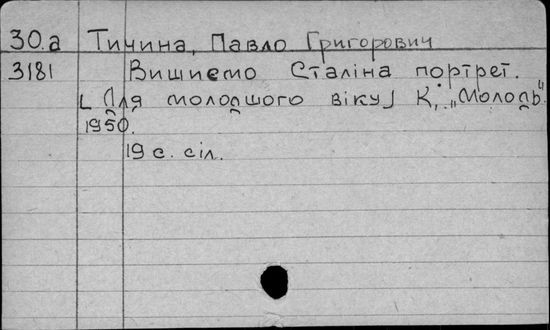 30.а Тичина, Павло Григорович
3181 Вишиємо Сталіна портрет.
[Для молодшого віку] К, „Молодь"
1950.
19 с. сіл.